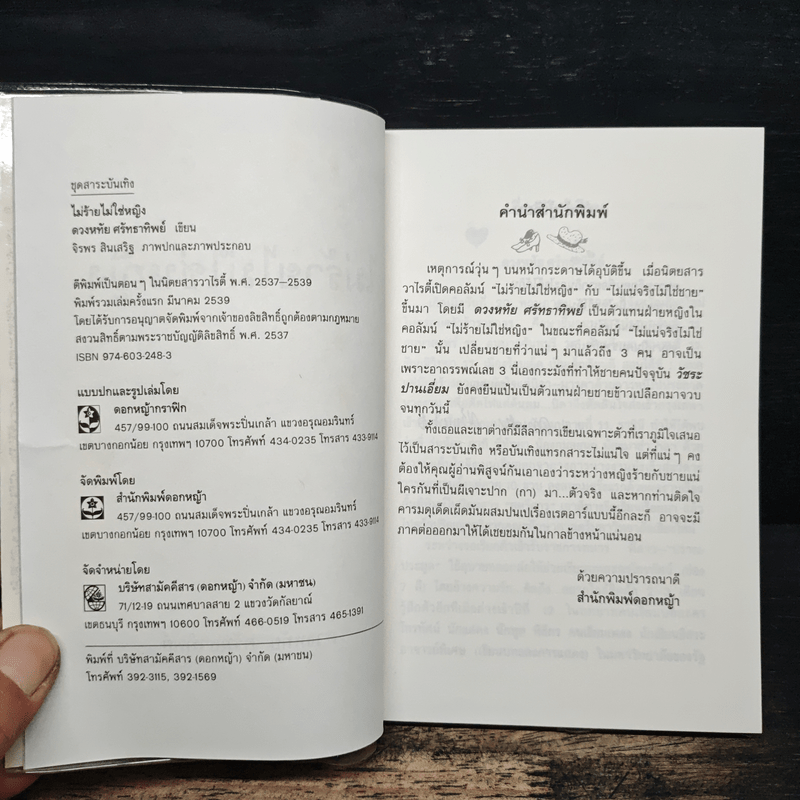 ชุดสาระบันเทิง
ไม่ร้ายไม่ใช่หญิง
ดวงหทัย ศรัทธาทิพย์ เขียน
จิรพร สินเสริฐ ภาพปกและภาพประกอบ
ตีพิมพ์เป็นตอน ๆ ในนิตยสารวาไรตี้ พ.ศ. 2537–2539
พิมพ์รวมเล่มครั้งแรก มีนาคม 2539
โดยได้รับการอนุญาตจัดพิมพ์จากเจ้าของลิขสิทธิ์ถูกต้องตามกฎหมาย
สงวนสิทธิ์ตามพระราชบัญญัติลิขสิทธิ์ พ.ศ. 2537
ISBN 974-603-248-3
แบบปกและรูปเล่มโดย
ดอกหญ้ากราฟิก
457/99-100 ถนนสมเด็จพระปิ่นเกล้า แขวงอรุณอมรินทร์
เขตบางกอกน้อย กรุงเทพฯ 10700 โทรศัพท์ 434-0235 โทรสาร 433-9114
จัดพิมพ์โดย
สำนักพิมพ์ดอกหญ้า
457/99-100 ถนนสมเด็จพระปิ่นเกล้า แขวงอรุณอมรินทร์
เขตบางกอกน้อย กรุงเทพฯ 10700 โทรศัพท์ 434-0235 โทรสาร 433-9114
จัดจำหน่ายโดย
บริษัทสามัคคีสาร (ดอกหญ้า) จำกัด (มหาชน)
71/12-19 ถนนเทศบาลสาย 2 แขวงวัดกัลยาณ์
เขตธนบุรี กรุงเทพฯ 10600 โทรศัพท์ 466-0519 โทรสาร 465-1391
พิมพ์ที่ บริษัทสามัคคีสาร (ดอกหญ้า) จำกัด (มหาชน)
โทรศัพท์ 392-3115, 392-1569
คำนำสำนักพิมพ์
เหตุการณ์วุ่น ๆ บนหน้ากระดาษได้อุบัติขึ้น เมื่อนิตยสาร
วาไรตี้เปิดคอลัมน์ "ไม่ร้ายไม่ใช่หญิง" กับ "ไม่แน่จริงไม่ใช่ชาย"
ขึ้นมา โดยมี ดวงหทัย ศรัทธาทิพย์ เป็นตัวแทนฝ่ายหญิงใน
คอลัมน์ "ไม่ร้ายไม่ใช่หญิง" ในขณะที่คอลัมน์ "ไม่แน่จริงไม่ใช่
ชาย" นั้น เปลี่ยนชายที่ว่าแน่ ๆ มาแล้วถึง 3 คน อาจเป็น
เพราะอาถรรพณ์เลข 3 นี่เองกระมังที่ทำให้ชายคนปัจจุบัน วัชระ
ปานเอี่ยม ยังคงยืนแป้นเป็นตัวแทนฝ่ายชายข้าวเปลือกมาจวบ
จนทุกวันนี้
ทั้งเธอและเขาต่างก็มีลีลาการเขียนเฉพาะตัวที่เราภูมิใจเสนอ
ไว้เป็นสาระบันเทิง หรือบันเทิงแทรกสาระไม่แน่ใจ แต่ที่แน่ ๆ คง
ต้องให้คุณผู้อ่านพิสูจน์กันเอาเองว่าระหว่างหญิงร้ายกับชายแน่
ใครกันที่เป็นผีเจาะปาก (กา) มา...ตัวจริง และหากท่านติดใจ
คารมดุเด็ดเผ็ดมันผสมปนเปเรื่องเรตอาร์แบบนี้อีกละก็ อาจจะมี
ภาคต่อออกมาให้ได้เชยชมกันในกาลข้างหน้าแน่นอน
ด้วยความปรารถนาดี
สำนักพิมพ์ดอกหญ้า